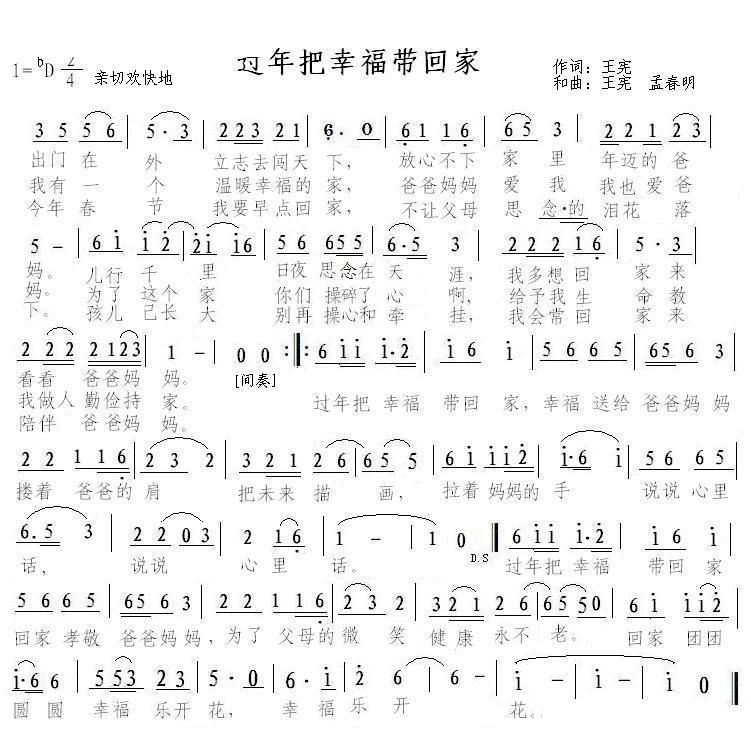 过年把幸福带回家
1=ᵇD 2/4 亲切欢快地
作词：王宪
和曲：王宪 孟春明
3 5 5 6 | 5· 3 | 2 2 3 2 1 | 6· 0 | 6 1 1 6 | 6 5 3 | 2 2 1 2 3 |
出门 在 外 立志去闯天 下， 放心不下 家 里 年迈的 爸
我有 一 个 温暖幸福的 家， 爸爸妈妈 爱 我 我也 爱爸
今年 春 节 我要早点回 家， 不让父母 思 念·的 泪花 落
5 – | 6 i i 2 | 2 i i 6 | 5 6 6 5 5 | 6· 5 3 | 2 2 2 1 6 | 5 5 3 |
妈。 儿行 千 里 日夜 思念在 天 涯， 我多想回 家 来
妈。 为了 这个 家 你们 操碎了 心 啊， 给予我生 命教
下。 孩儿 已长 大 别再 操心和 牵 挂， 我会常回 家 来
2 2 2 2 1 2 3 | 1 – | 0 0 :||: 6 i i i· 2 | i 6 i | 5 6 6 5 6 | 6 5 6 5 3 |
看看 爸爸妈 妈。 [间奏]
我做人 勤俭持 家。 过年把 幸福 带回 家，幸福 送给 爸爸妈 妈
陪伴 爸爸妈 妈。
2 2 1 1 6 | 2· 3 | 3 2 1 2 6 | 5 6 5 | 6 i i i 2 | i· 6 i | 5 6 5 6 |
搂着 爸爸的 肩 把未来 描 画， 拉着 妈妈的 手 说说 心里
6· 5 3 | 2 2 0 3 | 2 1 6 | 1 – | 1 0 || 6 i i i· 2 | i 6 i |
话， 说说 心 里 话。 D.S 过年把 幸福 带回 家
5 6 6 5 | 6 5 6 3 | 2 2 1 1 6 | 2· 3 | 3 2 1 2 6 | 6 5 5 0 | 6 i i i 2 |
回家 孝敬 爸爸妈 妈，为了 父母的 微 笑 健康 永不 老。 回家 团团
i· 6 6 | 5 5 3 2 3 | 5· 0 | 6· 5 | 6 2 | 1 – | 1 – | 1 0 ||
圆 圆 幸福 乐开 花， 幸 福 乐 开 花。